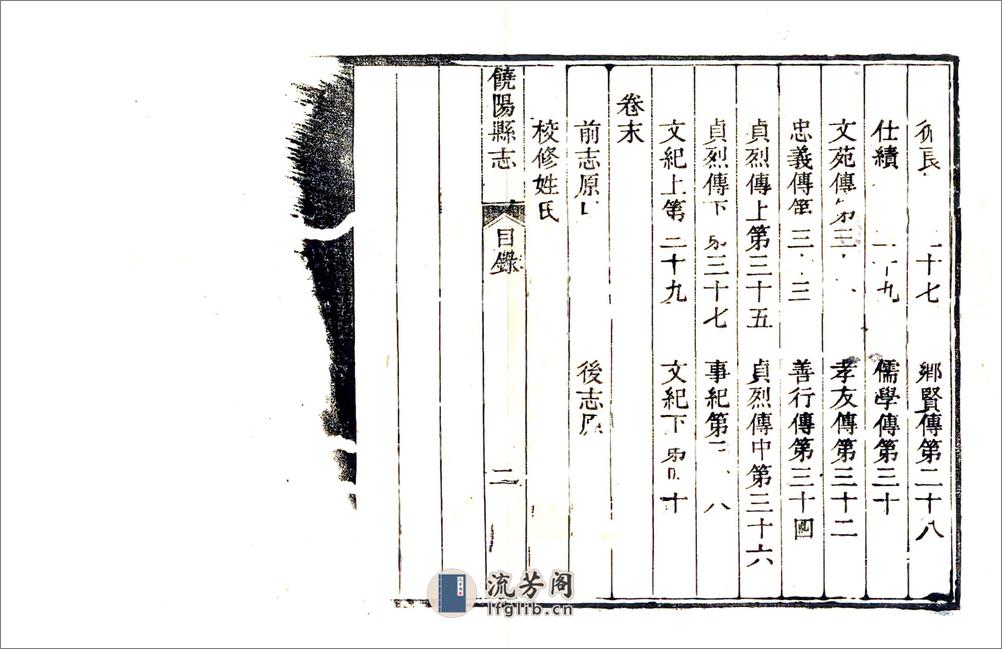 二十七　鄉賢傳第二十八
仕績　二十九　儒學傳第三十
文苑傳第三　孝友傳第三十二
忠義傳第三十三　善行傳第三十四
貞烈傳上第三十五　貞烈傳中第三十六
貞烈傳下第三十七　事紀第三十八
文紀上第三十九　文紀下第四十
卷末
前志原　後志原
校修姓氏
饒陽縣志　目錄　二
流芳阁
lfglib.cn